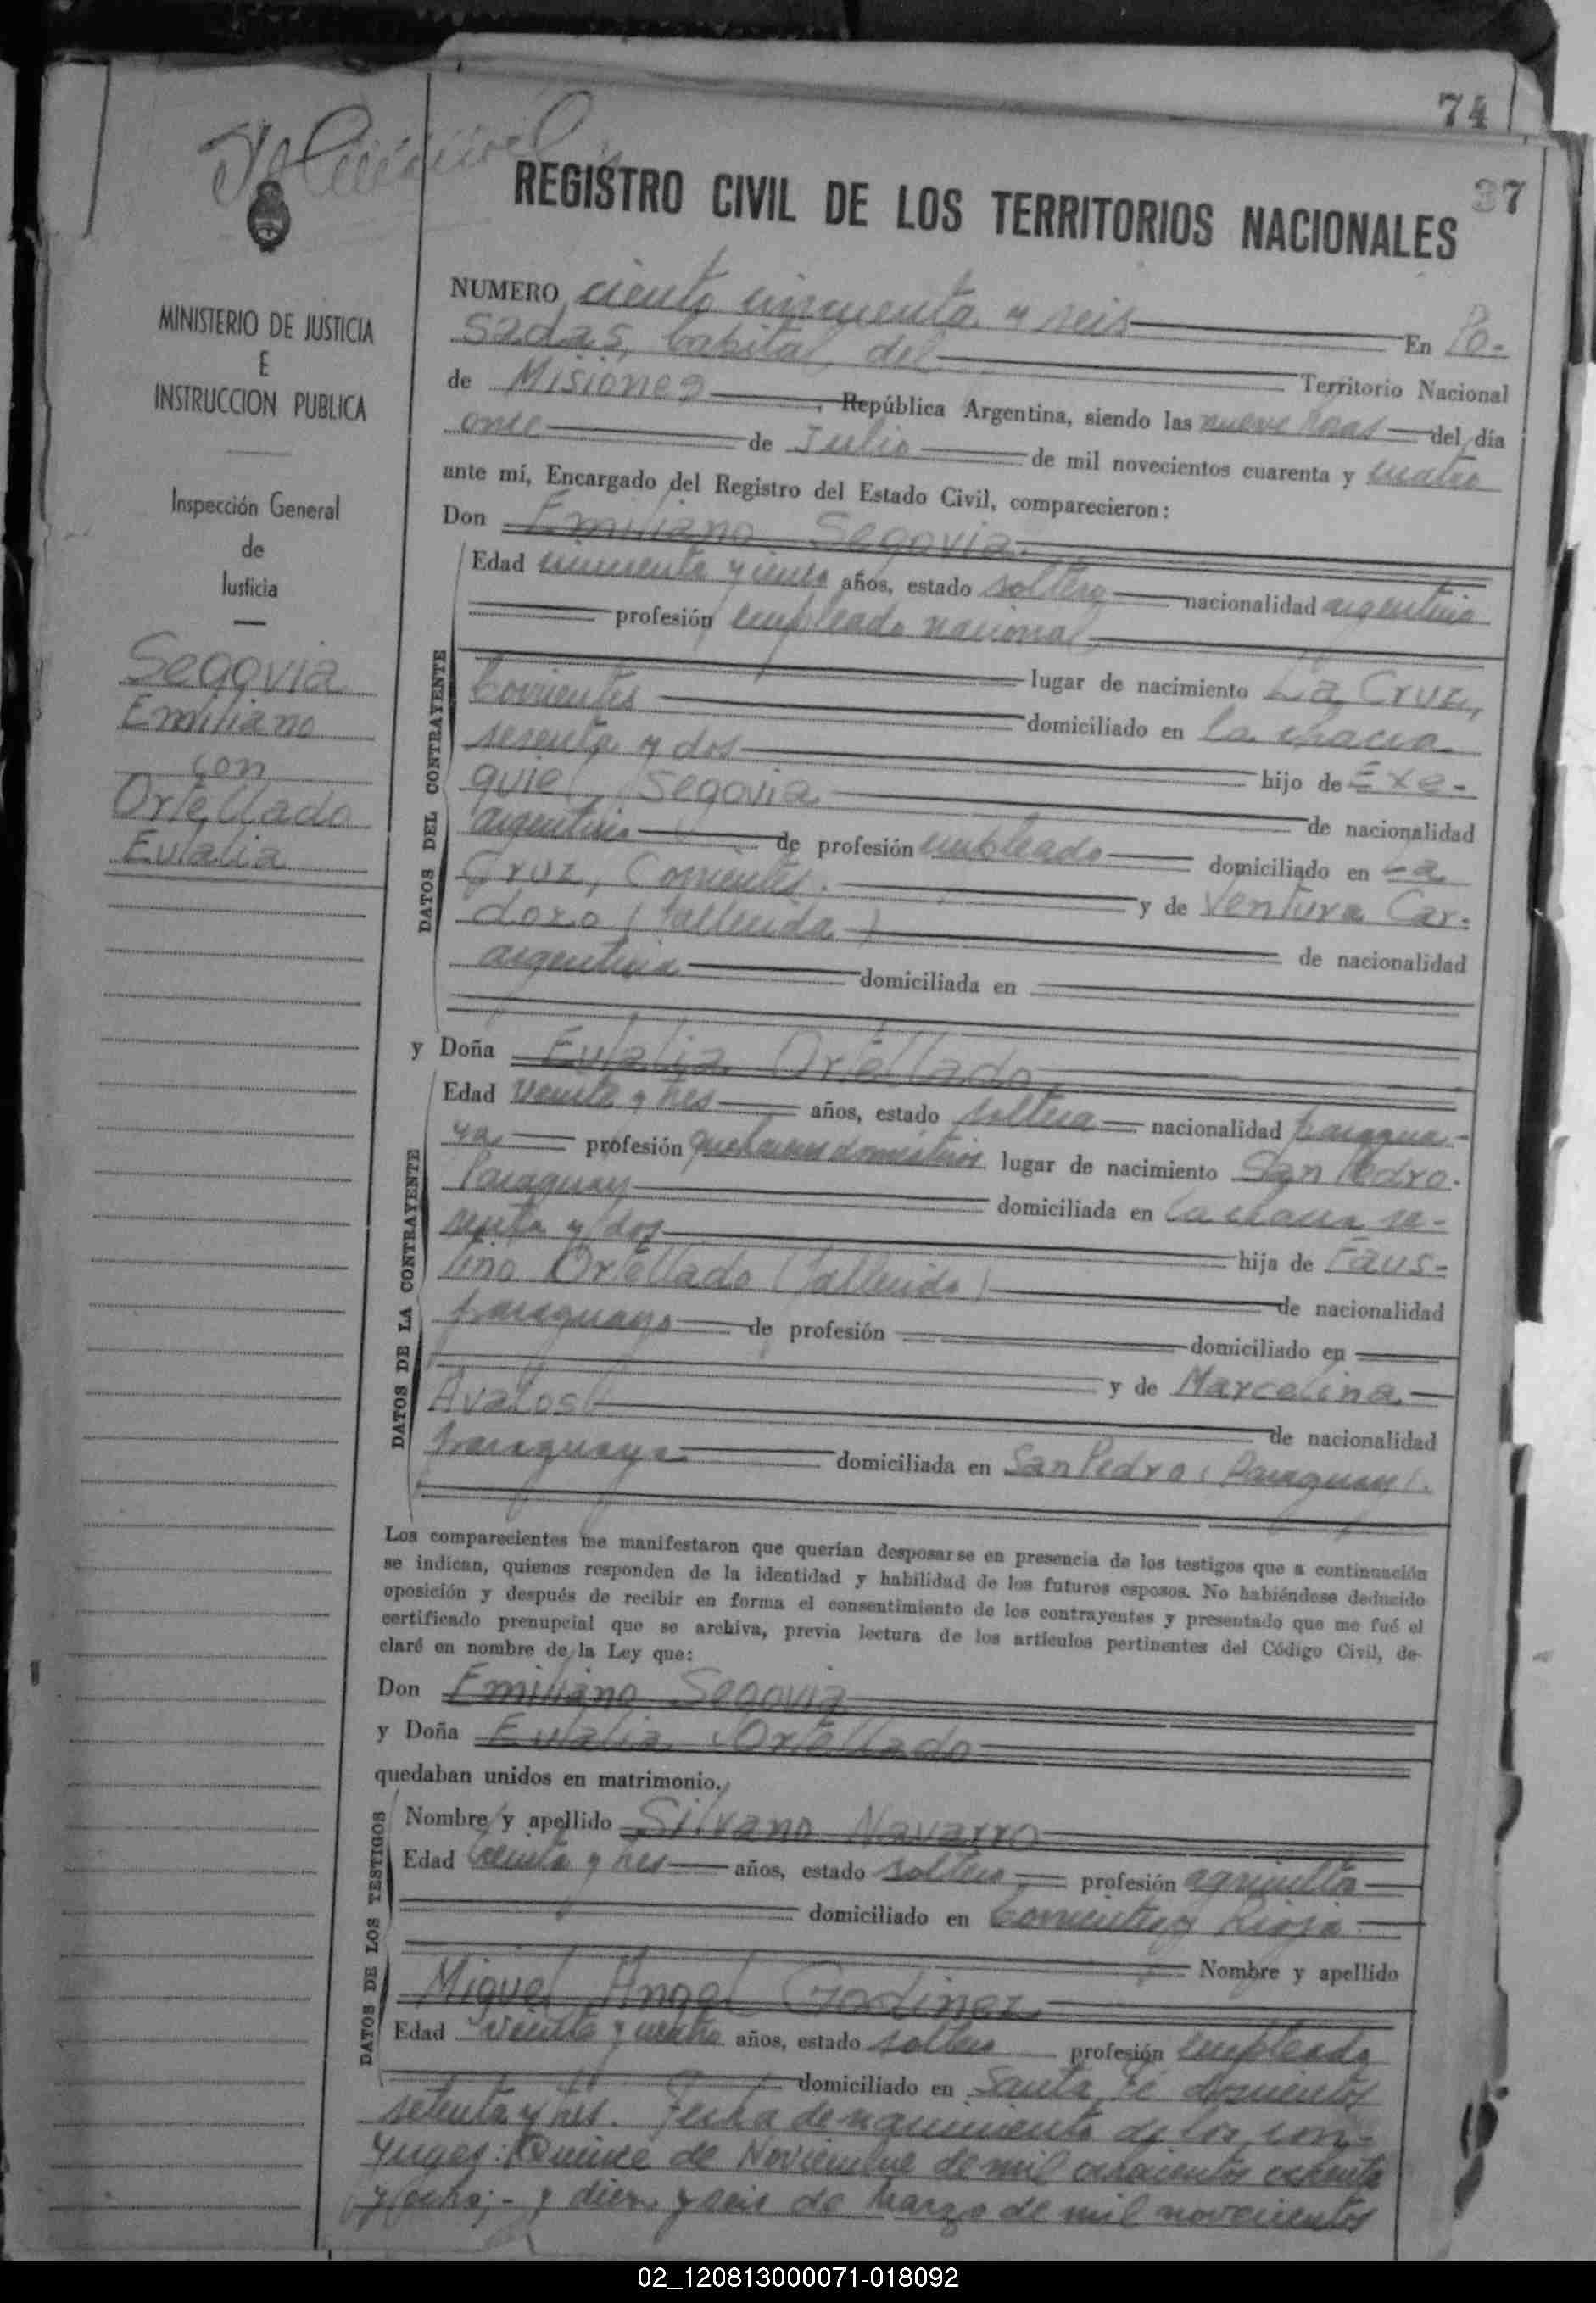 74
37
REGISTRO CIVIL DE LOS TERRITORIOS NACIONALES
MINISTERIO DE JUSTICIA
E
INSTRUCCION PUBLICA
Inspección General
de
Justicia
Segovia
Emiliano
con
Ortellado
Eulalia
NUMERO ciento cincuenta y seis En Po-
sadas, Capital del Territorio Nacional
de Misiones, República Argentina, siendo las nueve horas del día
once de Julio de mil novecientos cuarenta y cuatro
ante mí, Encargado del Registro del Estado Civil, comparecieron:
Don Emiliano Segovia
DATOS DEL CONTRAYENTE
Edad cincuenta y cinco años, estado soltero nacionalidad argentina
profesión empleado nacional
lugar de nacimiento La Cruz,
Corrientes domiciliado en la chacra
sesenta y dos hijo de Exe-
quiel Segovia de nacionalidad
argentina de profesión empleado domiciliado en La
Cruz, Corrientes. y de Ventura Car-
dozo (fallecida) de nacionalidad
argentina domiciliada en
y Doña Eulalia Ortellado
DATOS DE LA CONTRAYENTE
Edad veinte y tres años, estado soltera nacionalidad paragua-
ya profesión quehaceres domésticos lugar de nacimiento San Pedro.
Paraguay domiciliada en la chacra se-
senta y dos hija de Faus-
tino Ortellado (fallecido) de nacionalidad
paraguayo de profesión domiciliado en
y de Marcelina
Avalos de nacionalidad
paraguaya domiciliada en San Pedro (Paraguay).
Los comparecientes me manifestaron que querían desposarse en presencia de los testigos que a continuación
se indican, quienes responden de la identidad y habilidad de los futuros esposos. No habiéndose deducido
oposición y después de recibir en forma el consentimiento de los contrayentes y presentado que me fué el
certificado prenupcial que se archiva, previa lectura de los artículos pertinentes del Código Civil, de-
claré en nombre de la Ley que:
Don Emiliano Segovia
y Doña Eulalia Ortellado
quedaban unidos en matrimonio.
DATOS DE LOS TESTIGOS
Nombre y apellido Silvano Navarro
Edad y tres años, estado soltero profesión agricultor
domiciliado en Corrientes y Rioja
Nombre y apellido
Miguel Angel Godinez
Edad veinte y cuatro años, estado soltero profesión empleado
domiciliado en Santa Fé doscientos
setenta y tres. Fecha de nacimiento de los con-
yuges: Quince de Noviembre de mil ochocientos ochenta
y ocho; - y diez y seis de Marzo de mil novecientos
02_120813000071-018092